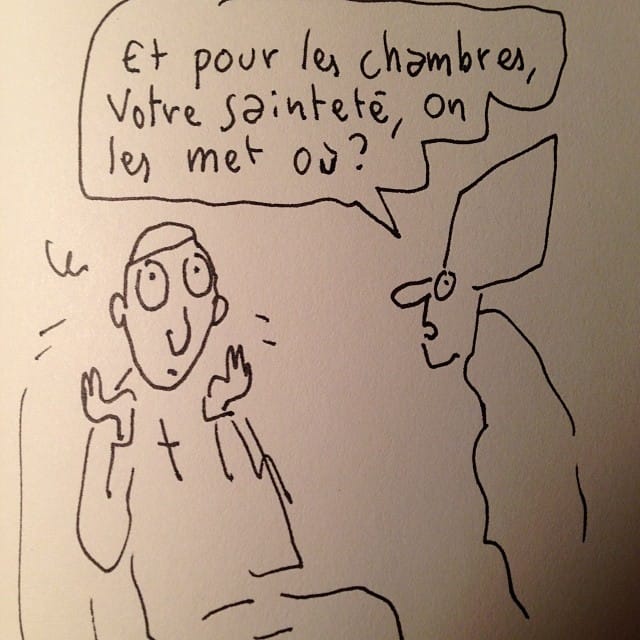 Et pour les chambres,
Votre sainteté, on
les met où?